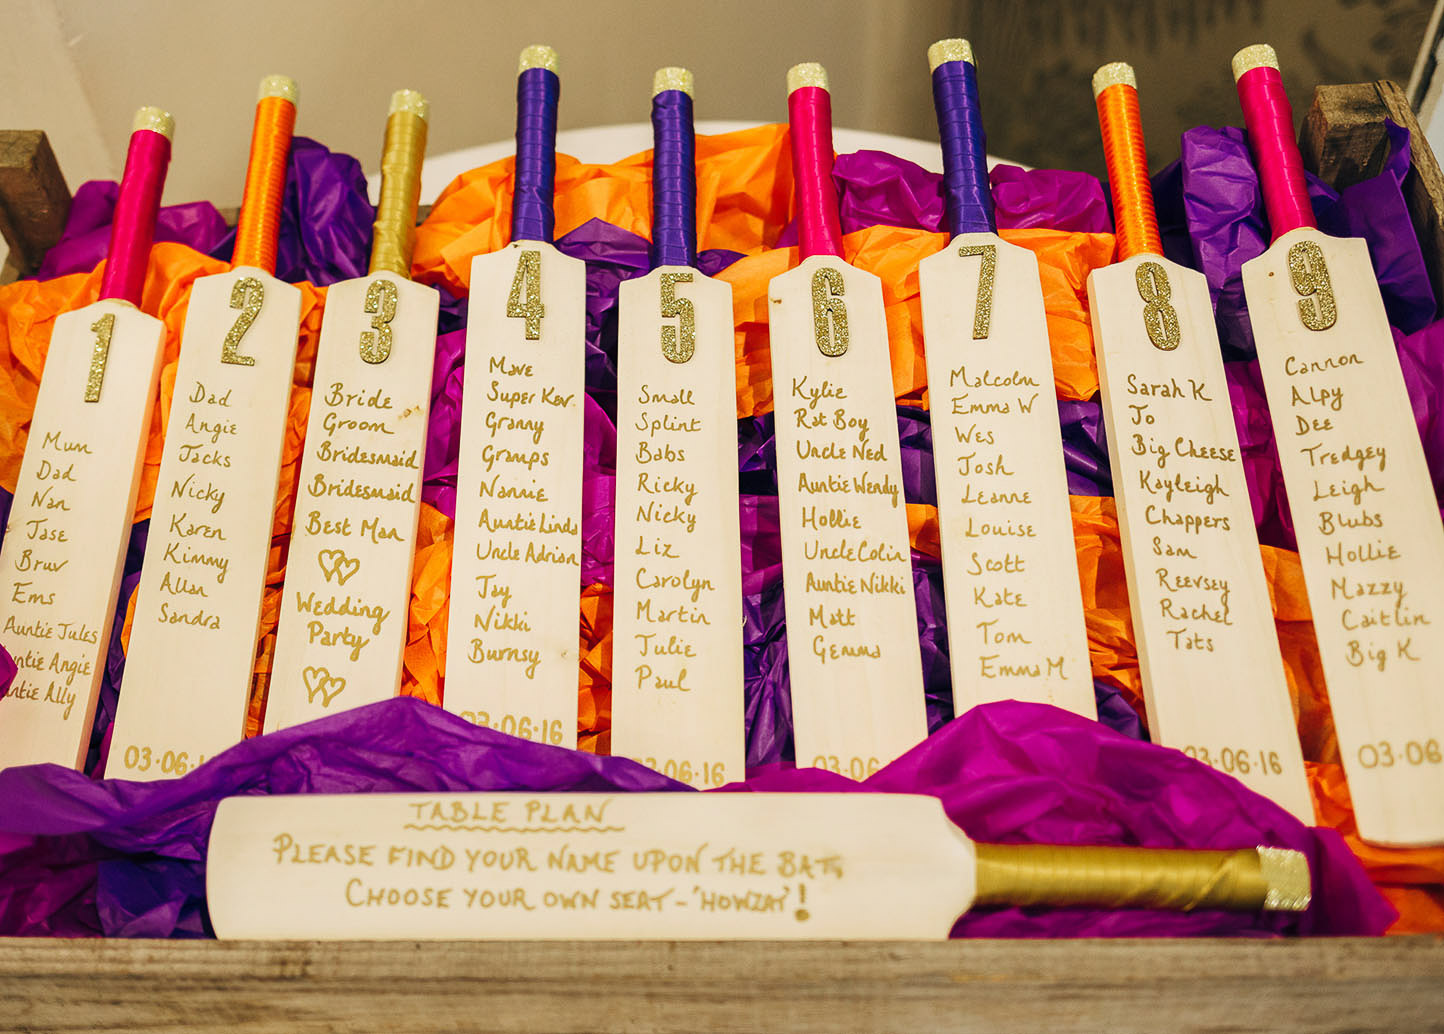 1
Mum
Dad
Nan
Jase
Bruv
Ems
Auntie Jules
Auntie Angie
Auntie Ally
2
Dad
Angie
Jacks
Nicky
Karen
Kimmy
Allan
Sandra
03·06·1
3
Bride
Groom
Bridesmaid
Bridesmaid
Best Man
Wedding
Party
4
Mave
Super Kev
Granny
Gramps
Nannie
Auntie Linda
Uncle Adrian
Jay
Nikki
Burnsy
03·06·16
5
Small
Splint
Babs
Ricky
Nicky
Liz
Carolyn
Martin
Julie
Paul
03·06·16
6
Kylie
Rat Boy
Uncle Ned
Auntie Wendy
Hollie
Uncle Colin
Auntie Nikki
Matt
Gemma
03·06
7
Malcolm
Emma W
Wes
Josh
Leanne
Louise
Scott
Kate
Tom
Emma M
8
Sarah K
Jo
Big Cheese
Kayleigh
Chappers
Sam
Reevsey
Rachel
Tats
03·06·16
9
Cannon
Alpy
Dee
Tredgey
Leigh
Blubs
Hollie
Mazzy
Caitlin
Big K
03·06
TABLE PLAN
PLEASE FIND YOUR NAME UPON THE BAT,
CHOOSE YOUR OWN SEAT - 'HOWZAT'!